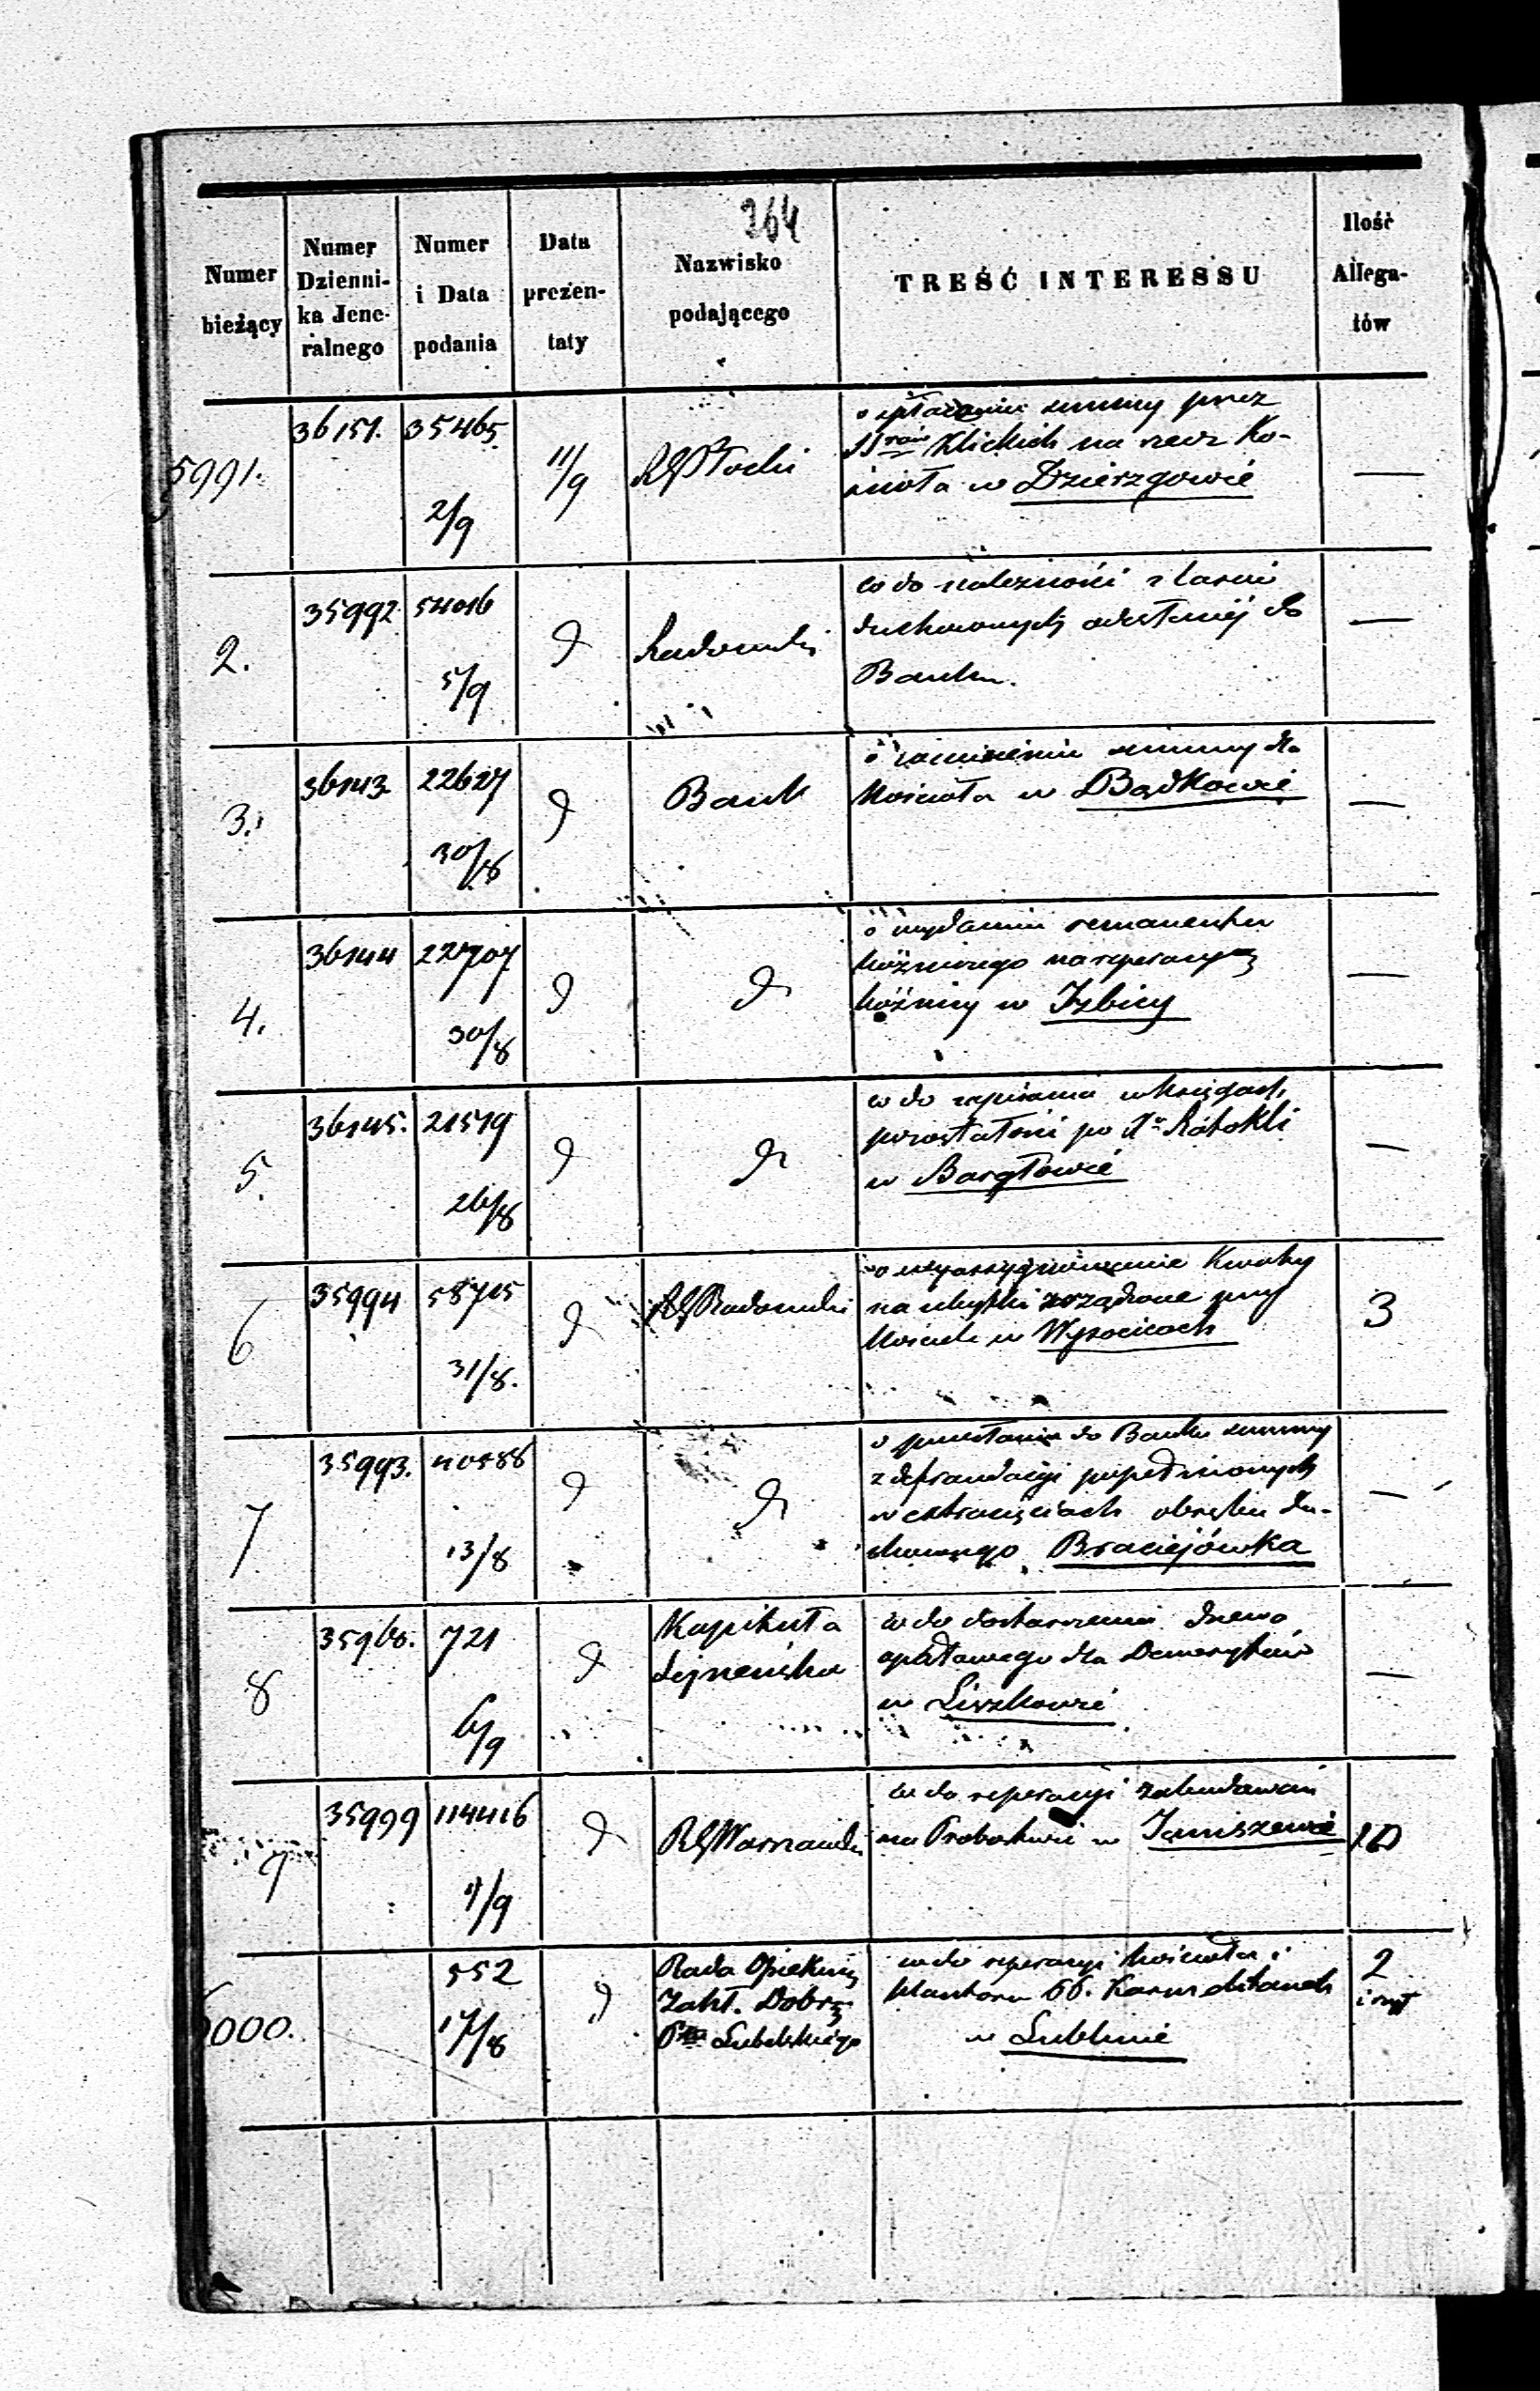 264
Numer bieżący
Numer Dzienni- ka Jene- ralnego
Numer i Data podania
Data prezen- taty
Nazwisko podającego
TREŚĆ INTERESSU
Ilość Allega- tów
5991. 36151. 35465 2/9 11/9 RG Płocki
o spłacenie summy przez
SSrów Klickich na rzecz Ko-
ścioła w Dzierzgowie
—
2. 35992 54016 5/9 d Radomski
co do należności z
duchownych odesłanéj do
Banku.
—
3. 36143. 22627 30/8 d Bank
o summy dla
Kościoła w Bądkowie
—
4. 36144 22707 30/8 d d
o wydanie remanentu
bóżniczego na reperacyą
bóżnicy w Izbicy
—
5. 36145. 21579 26/8 d d
co do zapisania w księgach
pozostałości po
w Bargłowie
—
6 35994 58715 31/8. d RG Radomski
o wyassygnowanie Kwoty
na ubytki zrządzone przy
Kościele w Wysocicach
3
7 35993. 40588 13/8 d d
o przesłanie do Banku summy
z defraudacyi popełnionych
w obrębu du-
chownego Braciejówka
—
8 35960. 721 6/9 d
Kapituła
Sejneńska
co do dostarczenia drzewa
opałowego dla Demerytów
w Liszkowie
—
9 35999 114416 4/9 d RG Warszawski
co do reperacyi zabudowań
na Probostwie w Janiszewie
10
6000. 552 17/8 d
Rada Opiekuńcza
Zakł. Dobr.
Ptu Lubelskiego
co do reperacyi Kościoła i
Klasztoru OO. Karmelitanek
w Lublinie
2
i